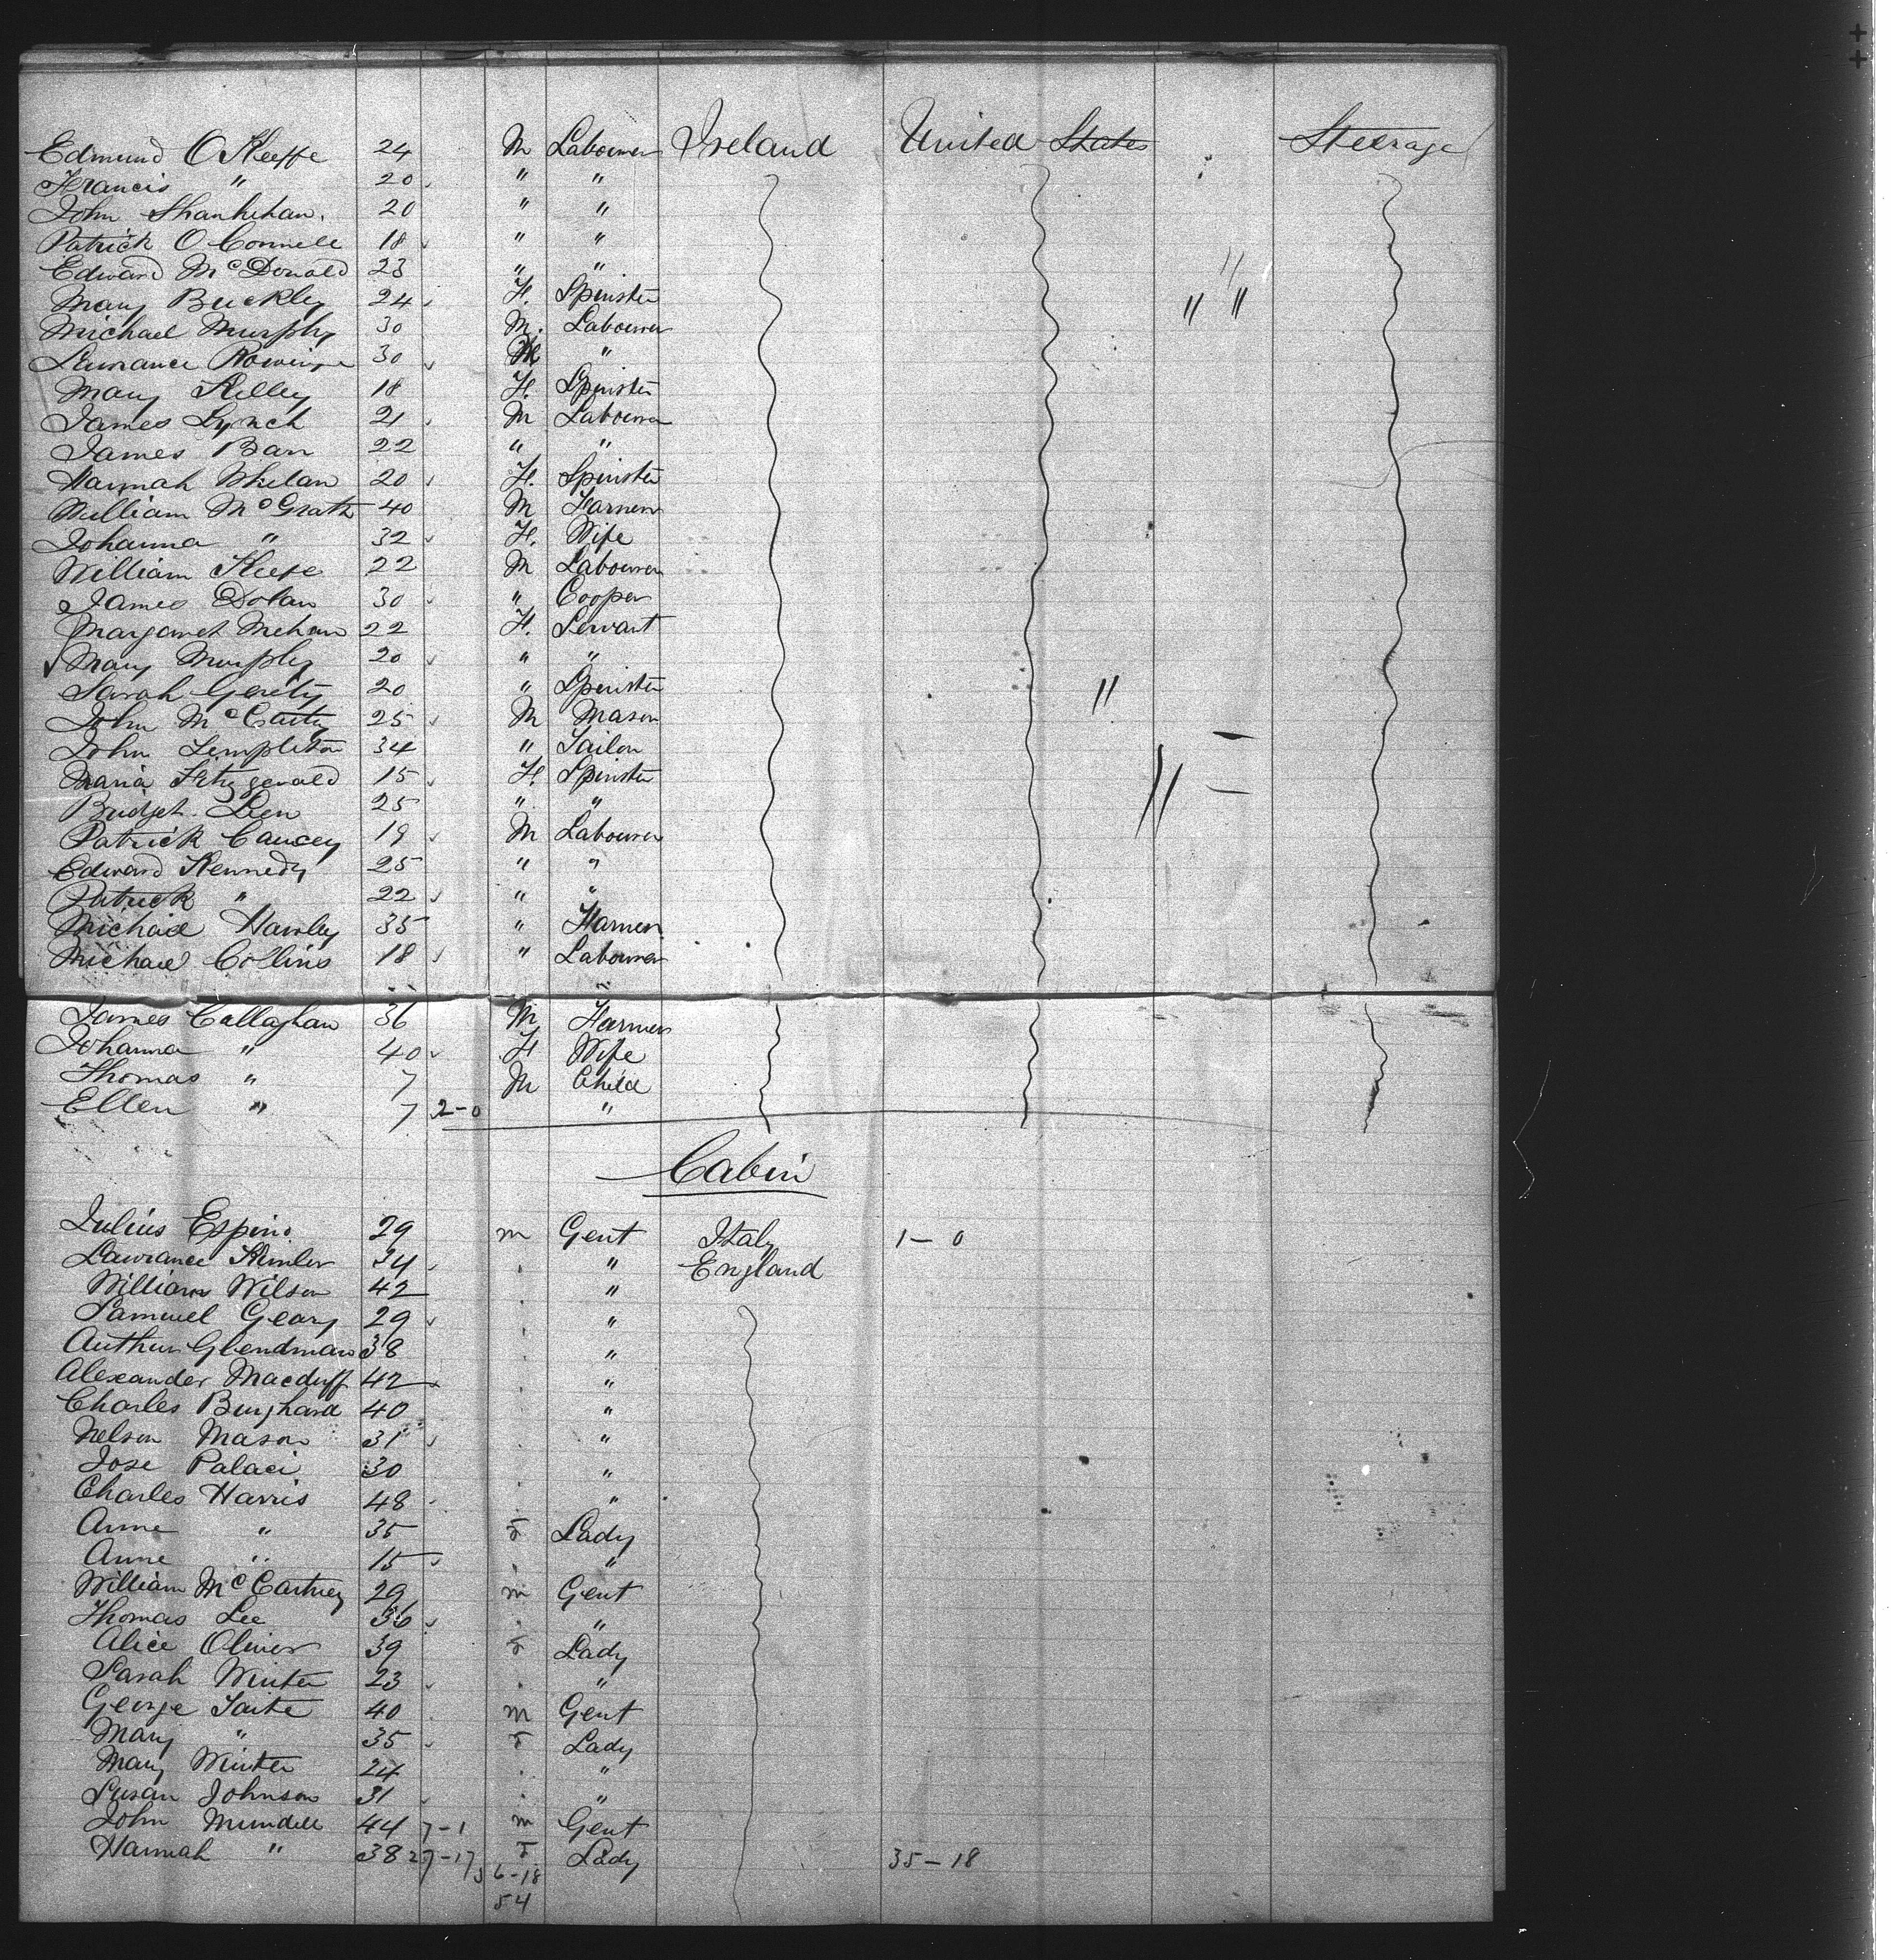 Edmund O Keeffe 24 M Labourer Ireland United States Steerage
Francis " 20 " "
John Shanhihan. 20 " "
Patrick O Connell 18 " "
Edward McDonald 23 " "
Mary Buckley 24 F. Spinster " "
Michael Murphy 30 M. Labourer
Lawrance 30 M "
Mary Kelley 18 F. Spinster
James Lynch 21 M Labourer
James Barr 22 " "
Hannah Whelan 20 F. Spinster
William McGrath 40 M Farmer
Johanna " 32 F. Wife
William Keefe 22 M Labourer
James Dolan 30 " Cooper
Margaret Mehan 22 F. Servant
Mary Murphy 20 " "
Sarah Gerety 20 " Spinster "
John McCarty 25 M Mason
John Templeton 34 " Tailor
Maria Fitzgerald 15 F. Spinster
Bridget Leen 25 " "
Patrick Caucey 19 M Labourer
Edward Kennedy 25 " "
Patrick " 22 " "
Michael Hawley 35 " Farmer
Michael Collins 18 " Labourer
James Callaghan 36 M Farmer
Johanna " 40 F Wife
Thomas " 7 M Child
Ellen " 7 2-0 "
Cabin
Julius Espino 29 m Gent Italy 1-0
Lawrance 34 " England
William Wilson 42 "
Samuel Geary 29 "
Arthur Glendman 38 "
Alexander Macduff 42 "
Charles Burghard 40 "
Nelson Mason 31 "
Jose Palaci 30 "
Charles Harris 48 "
Anne " 35 F Lady
Anne " 15 "
William McCartney 29 m Gent
Thomas Lee 36 "
Alice Oliver 39 F Lady
Sarah Winter 23 "
George Taite 40 m Gent
Mary " 35 F Lady
Mary Winter 24 "
Susan Johnson 31 "
John Mundell 44 7-1 m Gent
Hannah " 38 27-17 F Lady 35-18
6-18
54